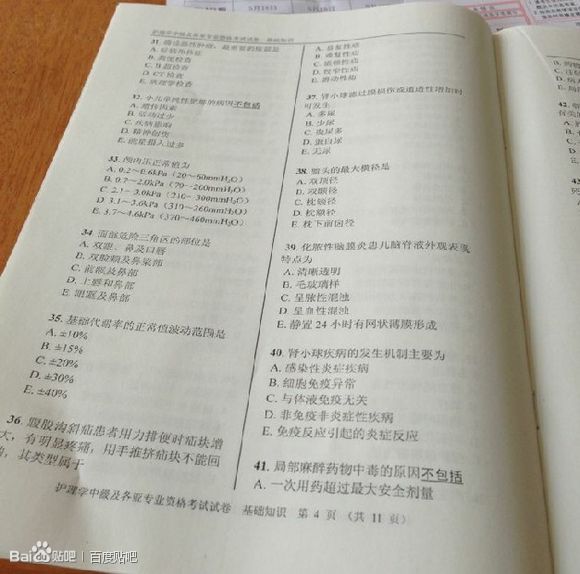 护理学中级及各亚专业资格考试试卷 基础知识
A. 病史和体征
B. 粪便检查
C. B 超检查
D. CT 检查
E. 病理学检查
32. 小儿单纯性肥胖的病因不包括
A. 遗传因素
B. 活动过少
C. 疾病影响
D. 精神创伤
E. 能量摄入过多
33. 颅内压正常值为
A. 0.2～0.6kPa（20～60mmH₂O）
B. 0.7～2.0kPa（70～200mmH₂O）
C. 2.1～3.0kPa（210～300mmH₂O）
D. 3.1～3.6kPa（310～360mmH₂O）
E. 3.7～4.6kPa（370～460mmH₂O）
34. 面部危险三角区的部位是
A. 双眼、鼻及口唇
B. 双脸颊及鼻梁部
C. 前额及鼻部
D. 上唇和鼻部
E. 眼眶及鼻部
35. 基础代谢率的正常值波动范围是
A. ±10%
B. ±15%
C. ±20%
D. ±30%
E. ±40%
36. 腹股沟斜疝患者用力排便时疝块增
大，有明显疼痛，用手推挤疝块不能回
纳，其类型属于
A. 易复性疝
B. 难复性疝
C. 嵌顿性疝
D. 绞窄性疝
E. 滑动性疝
37. 肾小球滤过膜损伤或通透性增加时
可发生
A. 多尿
B. 少尿
C. 夜尿多
D. 蛋白尿
E. 无尿
38. 胎头的最大横径是
A. 双顶径
B. 双颞径
C. 枕颏径
D. 枕额径
E. 枕下前囟径
39. 化脓性脑膜炎患儿脑脊液外观表现
特点为
A. 清晰透明
B. 毛玻璃样
C. 呈脓性混浊
D. 呈血性混浊
E. 静置 24 小时有网状薄膜形成
40. 肾小球疾病的发生机制主要为
A. 感染性炎症疾病
B. 细胞免疫异常
C. 与体液免疫无关
D. 非免疫非炎症性疾病
E. 免疫反应引起的炎症反应
41. 局部麻醉药物中毒的原因不包括
A. 一次用药超过最大安全剂量
护理学中级及各亚专业资格考试试卷 基础知识 第 4 页 （共 11 页）
Bai du 贴吧 | 百度贴吧